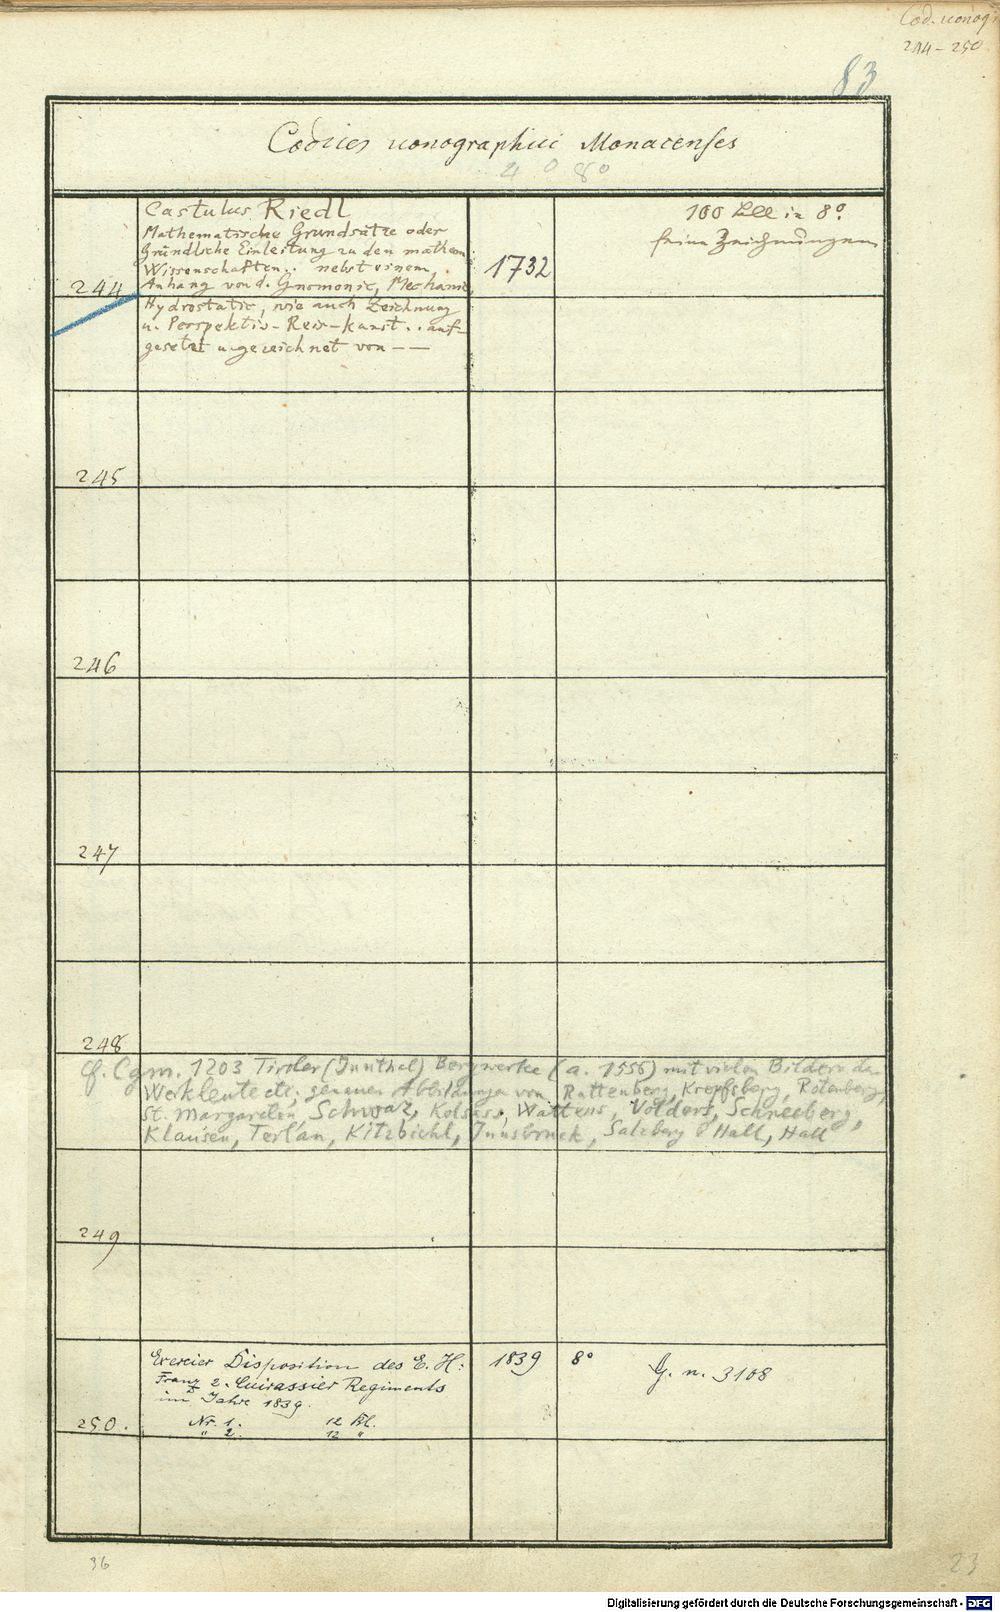 Cod. iconogr
244-250
83
Codices iconographici Monacenses
4° 8°
Castulus Riedl
Mathematische Grundsätze oder
Gründliche Einleitung zu den mathem
Wissenschaften.. nebst einem
Anhang von d. Gnomonic, Mechanic,
Hydrostatic, wie auch Zeichnung
u. Perspektiv-Reis-kunst.. auf-
gesetzt u. gezeichnet von — —
244
1732
100 Bll in 8°.
feine Zeichnungen
245
246
247
248
cf. Cgm. 1203 Tiroler (Innthal) Bergwerke (a. 1556) mit vielen Bildern der
Werkleute etc. genauen Abbildungen von Rattenberg, Kropfsberg, Rotenberg,
St. Margareten, Schwaz, Kolsass, Wattens, Volders, Schneeberg,
Klausen, Terlan, Kitzbichl, Innsbruck, Salzberg b Hall, Hall
249
Exercier Disposition des E. H:
Franz 2. Cuirassier Regiments
im Jahre 1839.
Nr. 1. 12 Bl.
" 2. 12 "
250.
1839
8°
G. n. 3108
36
23
Digitalisierung gefördert durch die Deutsche Forschungsgemeinschaft - DFG